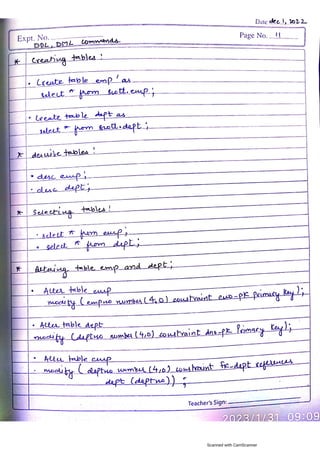 Date dec 1, 2022
Expt. No. Page No. 11
DDL, DML Commands
* Creating tables :
• Create table emp as
select * from scott.emp ;
• Create table dept as
select * from scott.dept ;
* describe tables :
• desc emp ;
• desc dept ;
* Selecting tables :
• select * from emp ;
• select * from dept ;
* Altering table emp and dept ;
• Alter table emp
modify ( empno number (4,0) constraint eno-pk primary key ) ;
• Alter table dept
modify (deptno number (4,0) constraint dno-pk Primary key) ;
• Alter table emp
modify ( deptno number (4,0) constraint fk-dept references
dept (deptno)) ;
Teacher's Sign:
2023/1/31 09:09
Scanned with CamScanner